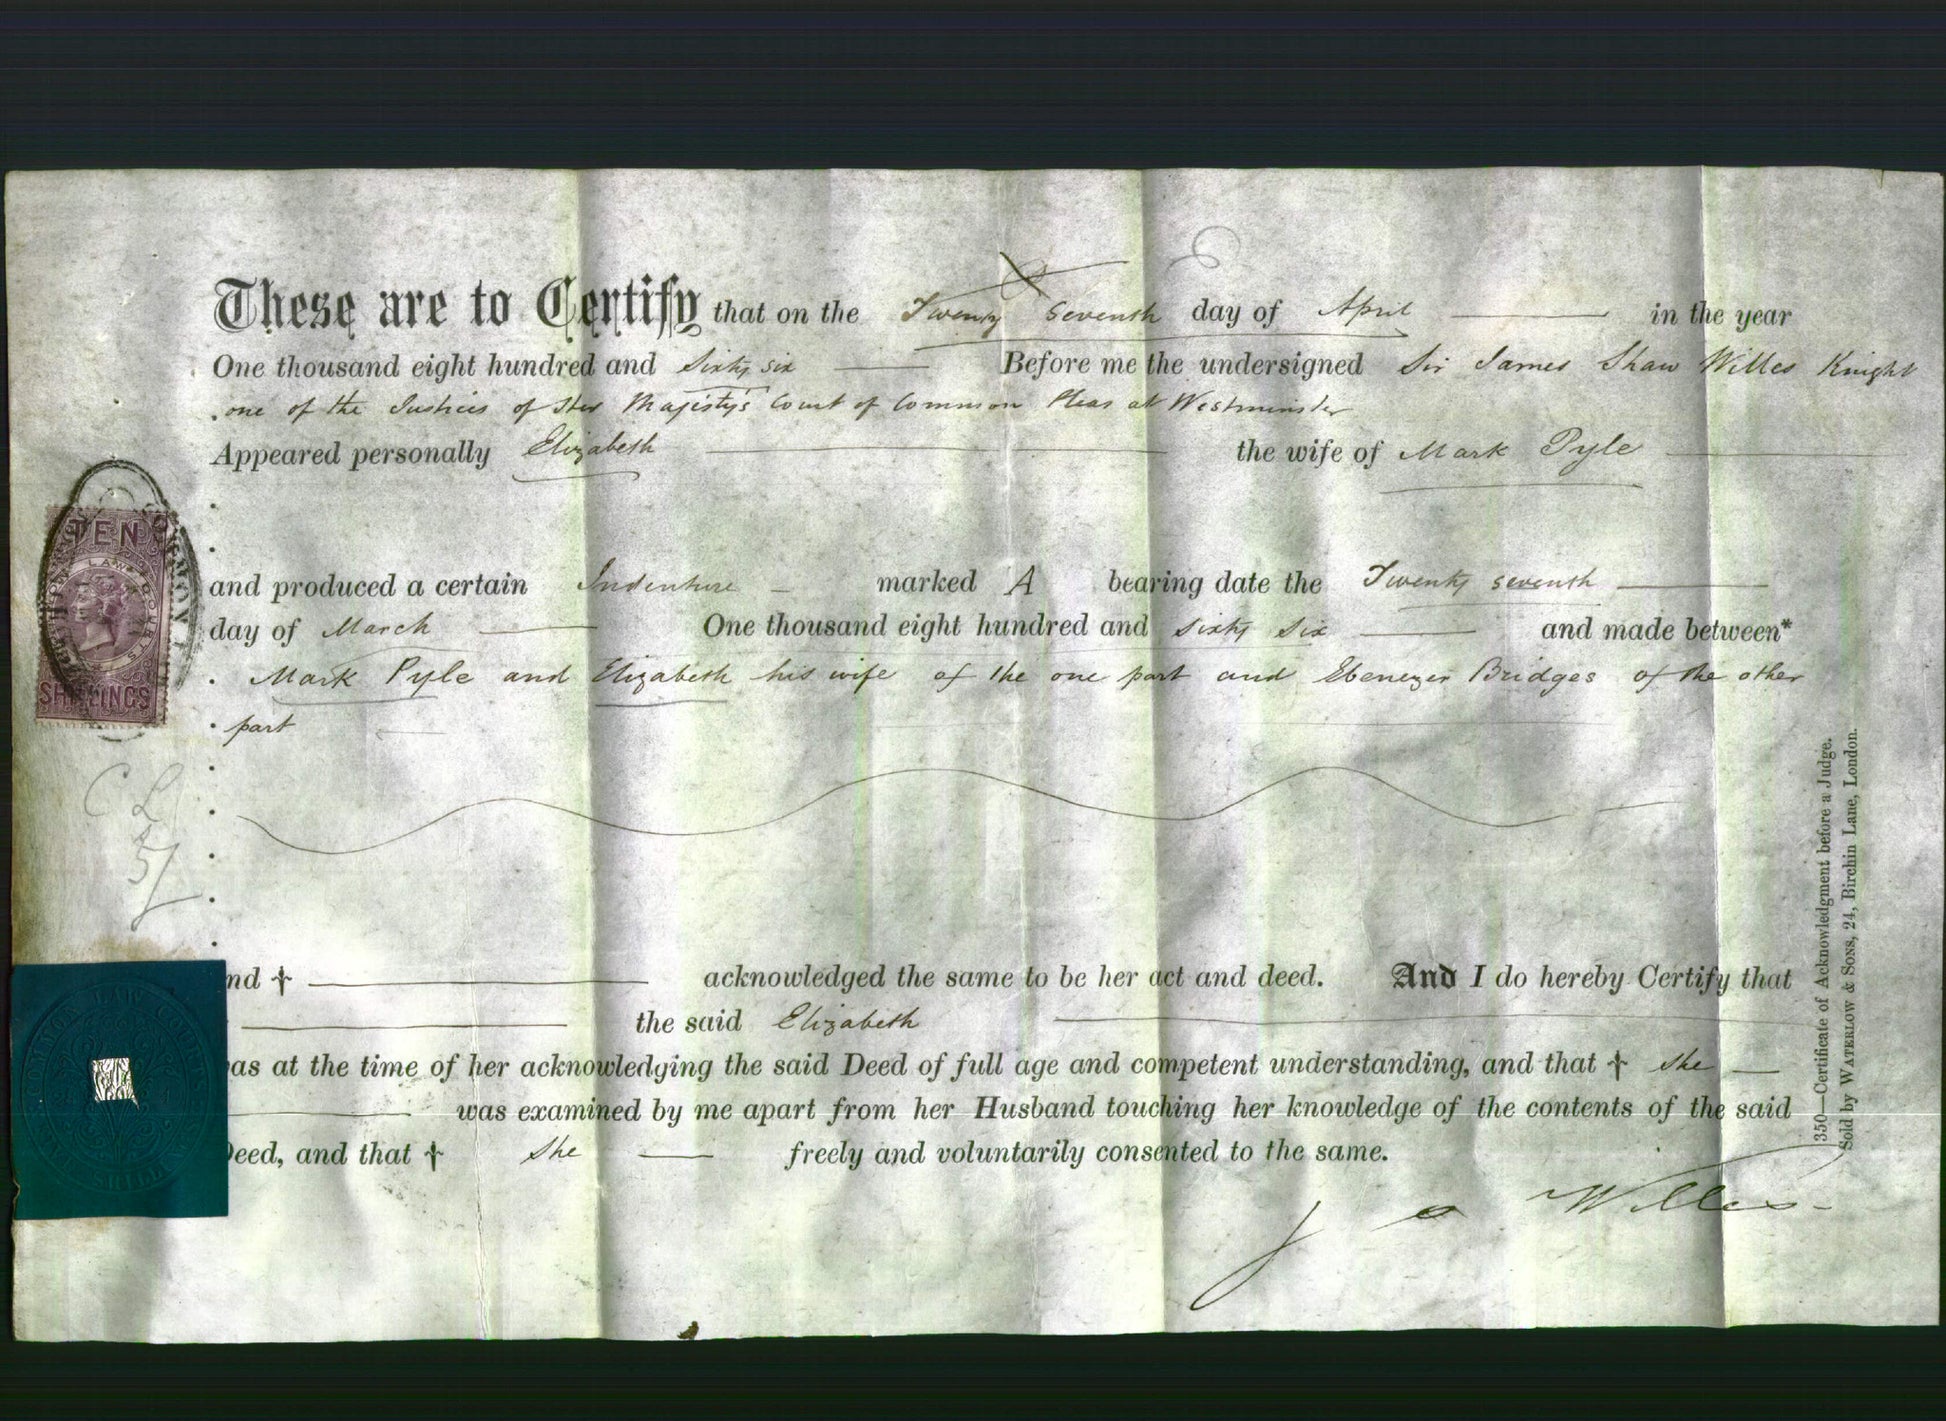 These are to Certify that on the Twenty Seventh day of April in the year
One thousand eight hundred and Sixty six Before me the undersigned Sir James Shaw Willes Knight
one of the Justices of Her Majesty's Court of Common Pleas at Westminster
Appeared personally Elizabeth the wife of Mark Pyle
and produced a certain Indenture marked A bearing date the Twenty seventh
day of March One thousand eight hundred and sixty six and made between*
Mark Pyle and Elizabeth his wife of the one part and Ebenezer Bridges of the other
part
nd † acknowledged the same to be her act and deed. And I do hereby Certify that
the said Elizabeth
as at the time of her acknowledging the said Deed of full age and competent understanding, and that † she
was examined by me apart from her Husband touching her knowledge of the contents of the said
Deed, and that † she freely and voluntarily consented to the same.
J S Willes
TEN
LAW COURTS
SHILLINGS
C L
5/
COMMON LAW
350—Certificate of Acknowledgment before a Judge.
Sold by WATERLOW & SONS, 24, Birchin Lane, London.